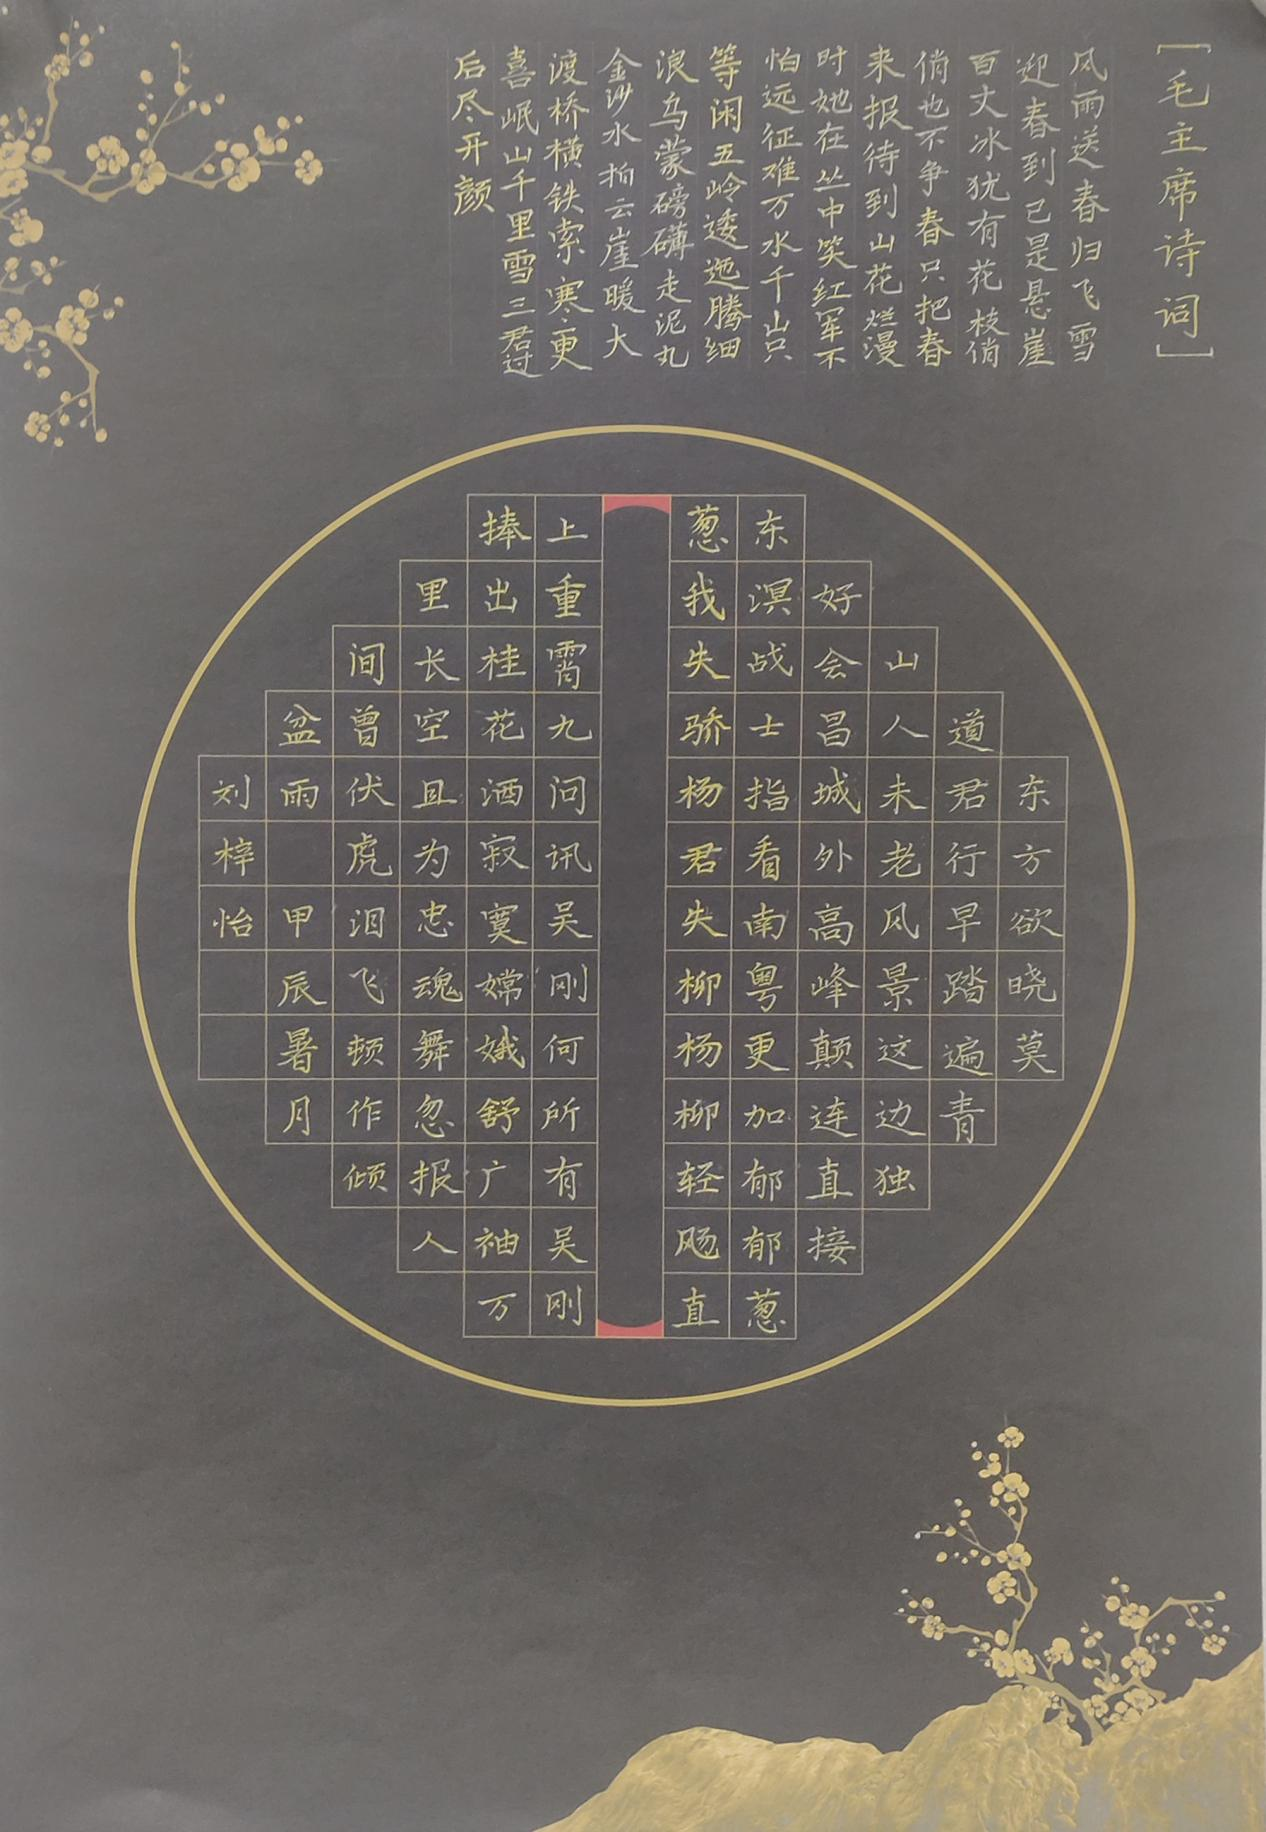 [毛主席诗词]
风雨送春归飞雪
迎春到已是悬崖
百丈冰犹有花枝俏
俏也不争春只把春
来报待到山花烂漫
时她在丛中笑红军不
怕远征难万水千山只
等闲五岭逶迤腾细
浪乌蒙磅礴走泥丸
金沙水拍云崖暖大
渡桥横铁索寒更
喜岷山千里雪三君过
后尽开颜
东方欲晓莫
道君行早踏遍青
山人未老风景这边独
好会昌城外高峰颠连直接
东溟战士指看南粤更加郁郁葱
葱我失骄杨君失柳杨柳轻飏直
上重霄九问讯吴刚何所有吴刚
捧出桂花酒寂寞嫦娥舒广袖万
里长空且为忠魂舞忽报人
间曾伏虎泪飞顿作倾
盆雨 甲辰暑月
刘梓怡